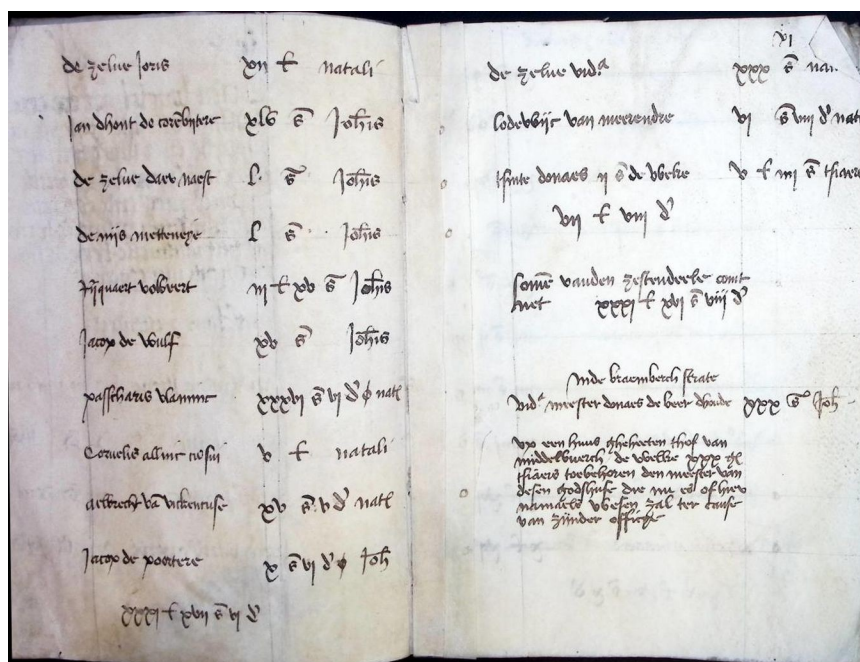 de zelve Joris xii £ natali
Jan dhont de corebijtere xlv s̄ Joh̄is
de zelve daer naest l s̄ Joh̄is
denijs metteneye l s̄ Joh̄is
volkert iii £ xv s̄ Joh̄is
Jacop de wulf xv s̄ Joh̄is
passcharis vlaminc xxxvi s̄ vi d natl
Cornelis allinc v £ natali
aelbrecht vā xv s̄ v d natl
Jacop de poertere x s̄ vi d Joh̄
xxxi £ xvii s̄ vi d
vi
de zelve vidᵃ xxx s̄ nat
lodewijc van meerendre vi s̄ viii d nat
tsinte donaes ii s̄ de weke v £ iiii s̄ tsiaers
vii £ viii d
Some vanden zestendeele comt
hier xxxi £ xvi s̄ viii d
Inde braemberch strate
vidᵃ meester donaes de beer dhoude xxx s̄ Joh
up een huus gheheeten thof van
middelbuerch de welke xxx
tsiaers toebehoren den meester van
desen godshuse die nu es of hier
namaels wesen zal ter cause
van zijnder officye